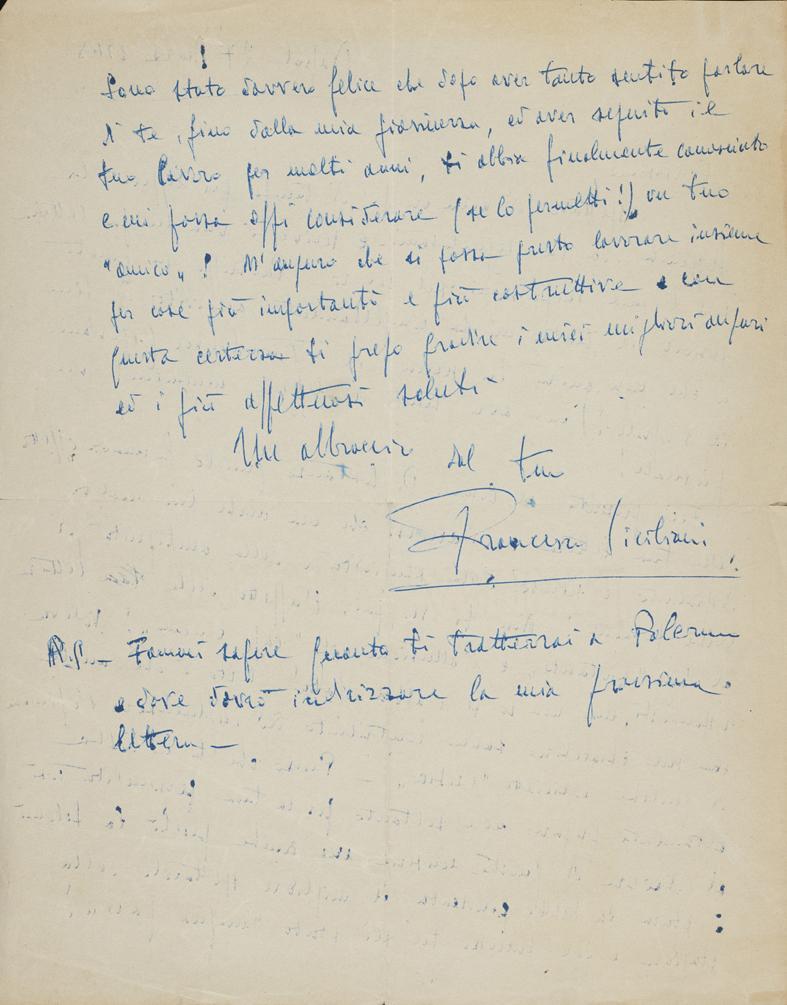 Sono stato davvero felice che dopo aver tanto sentito parlare
di te, fino dalla mia giovinezza, ed aver seguito il
tuo lavoro per molti anni, ti abbia finalmente conosciuto
e mi possa oggi considerare (se lo permetti!) un tuo
"amico"! M'auguro che si possa presto lavorare insieme
per cose più importanti e più costruttive e con
questa certezza ti prego gradire i miei migliori auguri
ed i più affettuosi saluti
Un abbraccio dal tuo
Francesco Siciliani
P.S. — Fammi sapere quanto ti tratterrai a Palermo
e dove dovrò indirizzare la mia prossima
lettera —